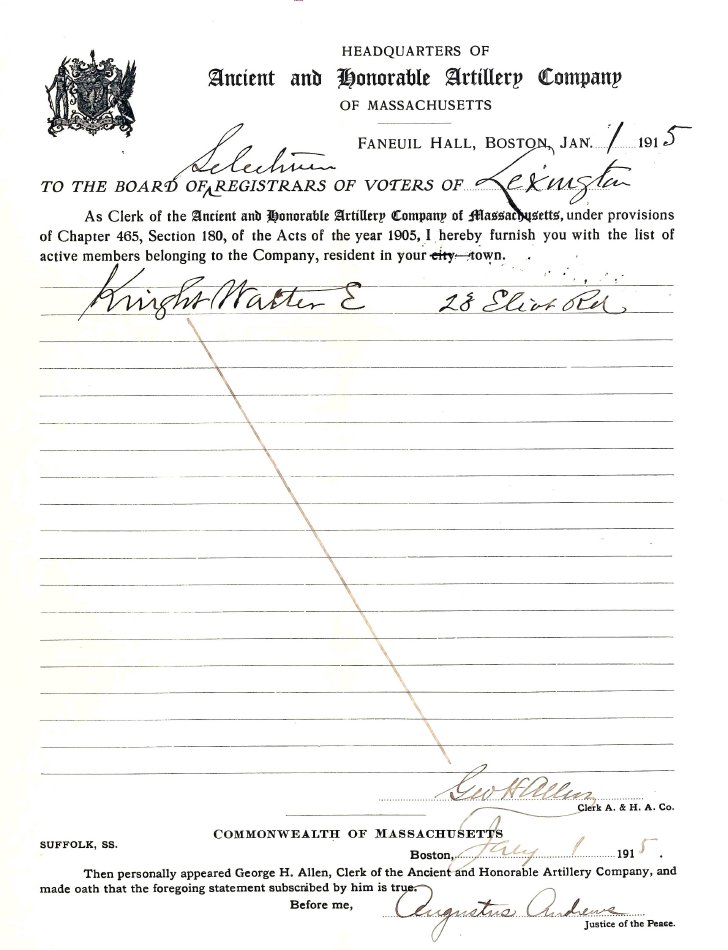 HEADQUARTERS OF
Ancient and Honorable Artillery Company
OF MASSACHUSETTS
FANEUIL HALL, BOSTON, JAN. 1 1915
Selectmen
TO THE BOARD OF REGISTRARS OF VOTERS OF Lexington
As Clerk of the Ancient and Honorable Artillery Company of Massachusetts, under provisions
of Chapter 465, Section 180, of the Acts of the year 1905, I hereby furnish you with the list of
active members belonging to the Company, resident in your city town.
Knight Walter E 28 Eliot Rd
Geo H Allen
Clerk A. & H. A. Co.
COMMONWEALTH OF MASSACHUSETTS
SUFFOLK, SS.
Boston, Jany 1 1915.
Then personally appeared George H. Allen, Clerk of the Ancient and Honorable Artillery Company, and
made oath that the foregoing statement subscribed by him is true.
Before me, Augustus Andrews
Justice of the Peace.